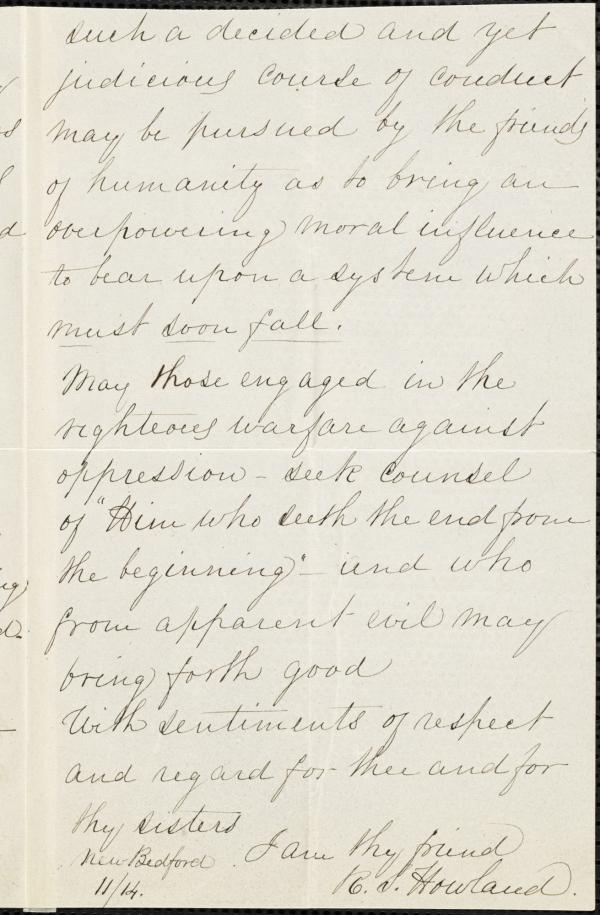 such a decided and yet
judicious course of conduct
may be pursued by the friends
of humanity as to bring an
overpowering moral influence
to bear upon a system which
must soon fall.
May those engaged in the
righteous warfare against
oppression - seek counsel
of "Him who seeth the end from
the beginning" - and who
from apparent evil may
bring forth good
With sentiments of respect
and regard for thee and for
thy sisters
I am thy friend
New Bedford
11/14.
R. S. Howland.